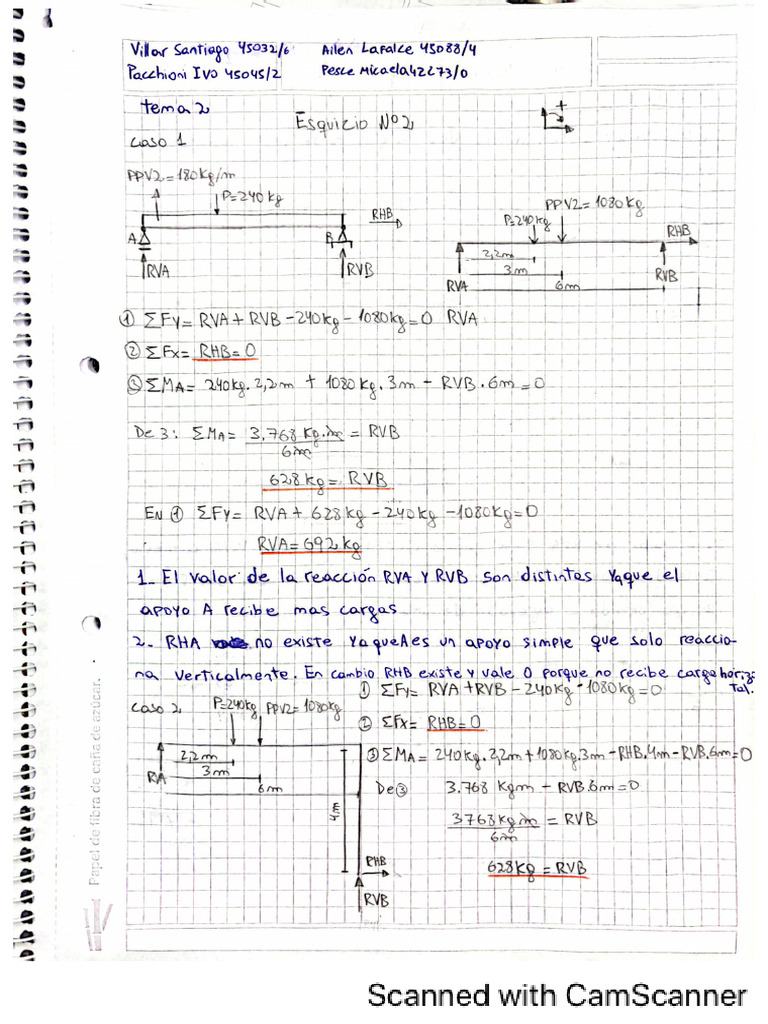 Villar Santiago 45032/6 Ailen Lafalce 45088/4
Pacchioni Ivo 45045/2 Pesce Micaela 42273/0
tema 2
Esquicio Nº2
+
Caso 1
PPV2=180kg/m
P=240kg
RHB
A
B
RVA
RVB
PPV2=1080kg
P=240kg
RHB
2,2m
3m
6m
RVA
RVB
① ΣFy= RVA+RVB-240kg-1080kg=0 RVA
② ΣFx= RHB=0
③ ΣMA= 240kg.2,2m + 1080kg.3m - RVB.6m=0
De 3: ΣMA= 3.768 Kg.m = RVB
6m
628kg= RVB
EN ① ΣFy= RVA+628kg-240kg-1080kg=0
RVA=692kg
1_ El valor de la reacción RVA y RVB son distintos yaque el
apoyo A recibe mas cargas
2_ RHA no existe ya que A es un apoyo simple que solo reaccio-
na verticalmente. En cambio RHB existe y vale 0 porque no recibe carga horiz
tal.
Caso 2
P=240kg PPV2=1080kg
2,2m
3m
6m
RVA
4m
RHB
RVB
① ΣFy= RVA+RVB-240kg-1080kg=0
② ΣFx= RHB=0
③ ΣMA= 240kg.2,2m+1080kg.3m-RHB.4m-RVB.6m=0
De③ 3.768 Kgm - RVB.6m=0
3768kgm = RVB
6m
628kg=RVB
Papel de fibra de caña de azúcar.
Scanned with CamScanner